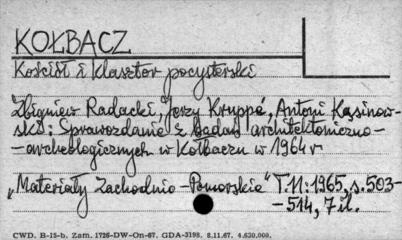 KOŁBACZ
Kościół i klasztor pocysterski
Zbigniew Radacki, Jerzy Kruppé, Antoni Kąsinow-
ski: Sprawozdanie z badań architektoniczno-
-archeologicznych w Kołbaczu w 1964 r
„Materiały Zachodnio-Pomorskie" T.11:1965, s.503-
-514, 7 il.
CWD. B-15-b. Zam. 1726-DW-On-67. GDA-3198. 8.11.67. 4.630.000.